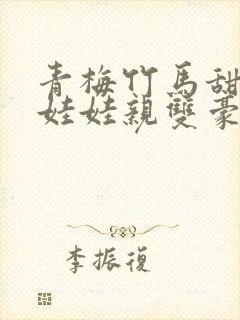 青梅竹馬甜
娃娃親雙豪
李振復